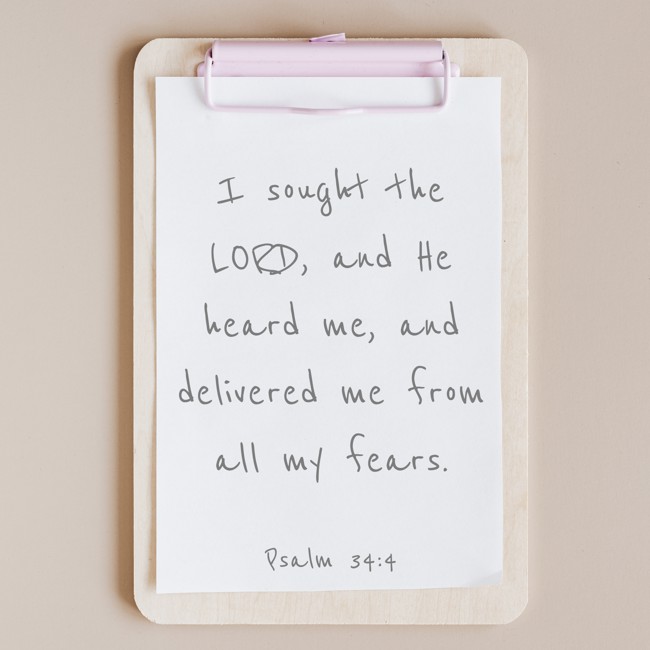 I sought the
LORD, and He
heard me, and
delivered me from
all my fears.
Psalm 34:4